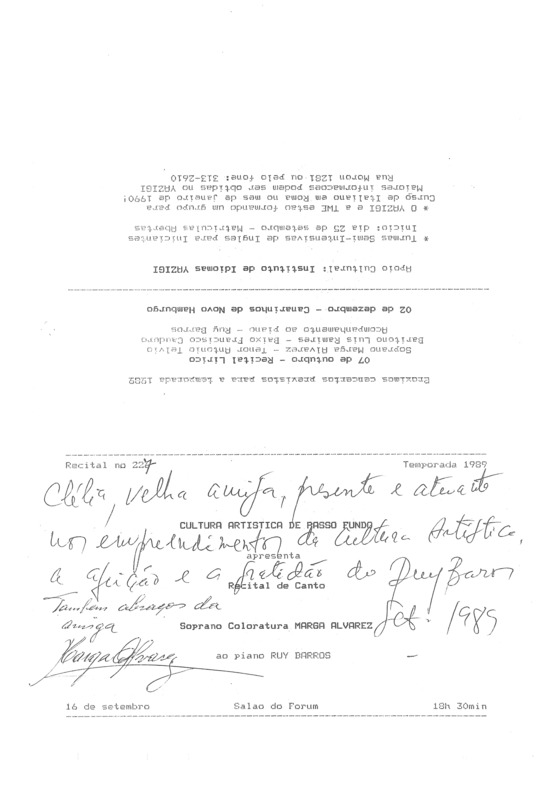 Recital no 227 Temporada 1989
Clélia, velha amiga, presente e atuante
CULTURA ARTISTICA DE PASSO FUNDO
nos empreendimentos da Cultura Artística,
apresenta
a afeição e a gratidão do Ruy Barros
Recital de Canto
Também abraços da
amiga
Soprano Coloratura MARGA ALVAREZ
Set. 1989
Marga Alvarez
ao piano RUY BARROS
16 de setembro Salao do Forum 18h 30min
Proximos concertos previstos para a temporada 1989
07 de outubro - Recital Lirico
Soprano Marga Alvarez - Tenor Antonio Telvio
Baritono Luis Ramires - Baixo Francisco Caduro
Acompanhamento ao piano - Ruy Barros
02 de dezembro - Canarinhos de Novo Hamburgo
Apoio Cultural: Instituto de Idiomas YAZIGI
* Turmas Semi-Intensivas de Ingles para Iniciantes
Inicio: dia 25 de setembro - Matriculas Abertas
* O YAZIGI e a TWE estao formando um grupo para
Curso de Italiano em Roma no mes de janeiro de 1990!
Maiores informacoes podem ser obtidas no YAZIGI
Rua Moron 1281 ou pelo fone: 313-2610